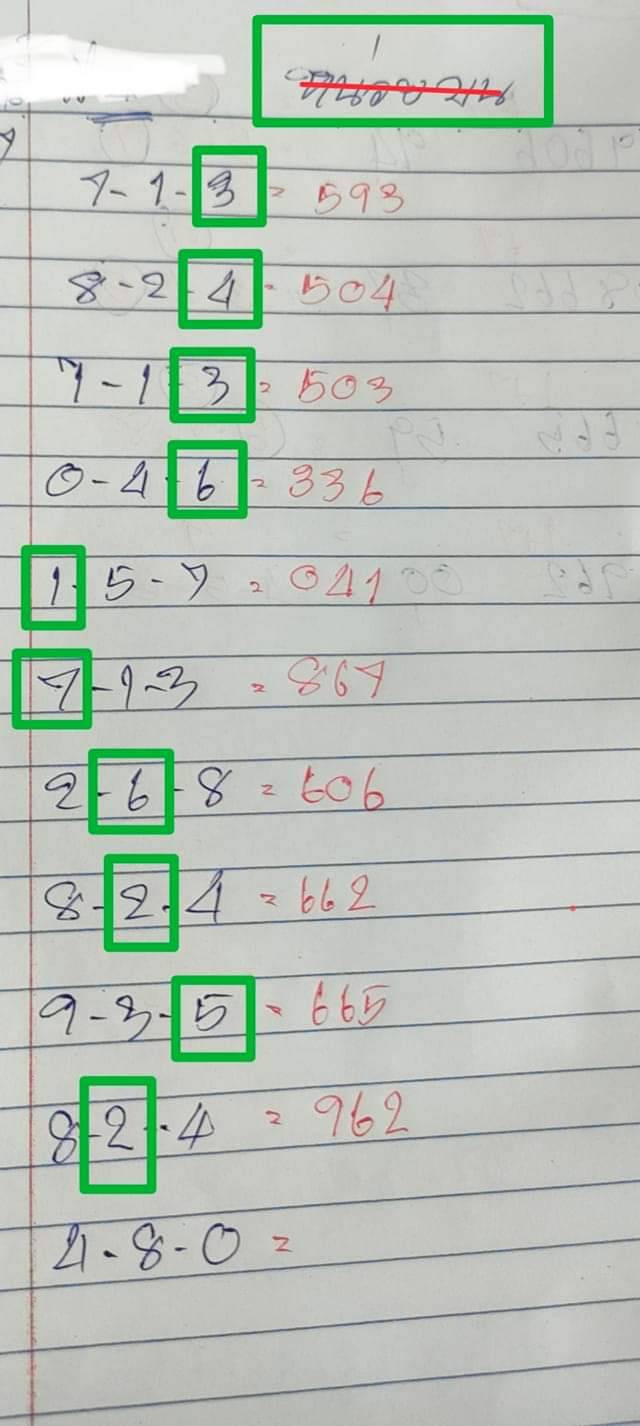 7-1-3 = 593
8-2-4 = 504
7-1-3 = 503
0-4-6 = 336
1-5-7 = 041
7-1-3 = 867
2-6-8 = 606
8-2-4 = 662
9-3-5 = 665
8-2-4 = 962
4-8-0 =